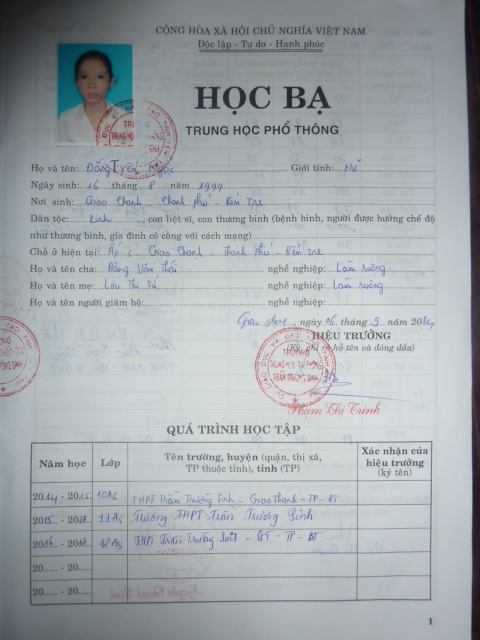 CỘNG HÒA XÃ HỘI CHỦ NGHĨA VIỆT NAM
Độc lập - Tự do - Hạnh phúc
HỌC BẠ
TRUNG HỌC PHỔ THÔNG
Họ và tên: Đặng Yến Ngọc Giới tính: Nữ
Ngày sinh: 16 tháng 8 năm 1999
Nơi sinh: Giao Thạnh - Thạnh Phú - Bến Tre
Dân tộc: Kinh, con liệt sĩ, con thương binh (bệnh binh, người được hưởng chế độ
như thương binh, gia đình có công với cách mạng)
Chỗ ở hiện tại: Ấp - Giao Thạnh - Thạnh Phú - Bến Tre
Họ và tên cha: Đặng Văn Thái nghề nghiệp: Làm ruộng
Họ và tên mẹ: Lưu Thị nghề nghiệp: Làm ruộng
Họ và tên người giám hộ: nghề nghiệp:
Giao Thạnh, ngày 06 tháng 9 năm 2014
HIỆU TRƯỞNG
(Ký, ghi rõ họ tên và đóng dấu)
TRƯỜNG
TRUNG HỌC PHỔ THÔNG
TRẦN TRƯỜNG SINH
Phạm Thị Trinh
QUÁ TRÌNH HỌC TẬP
Năm học Lớp Tên trường, huyện (quận, thị xã, TP thuộc tỉnh), tỉnh (TP) Xác nhận của hiệu trưởng (ký tên)
2014 - 2015 10A6 THPT Trần Trường Sinh - Giao Thạnh - TP - BT
2015 - 20 11A5 Trường THPT Trần Trường Sinh
2016 - 20 12A5 THPT Trần Trường Sinh - GT - TP - BT
20..... - 20.....
20..... - 20.....
1